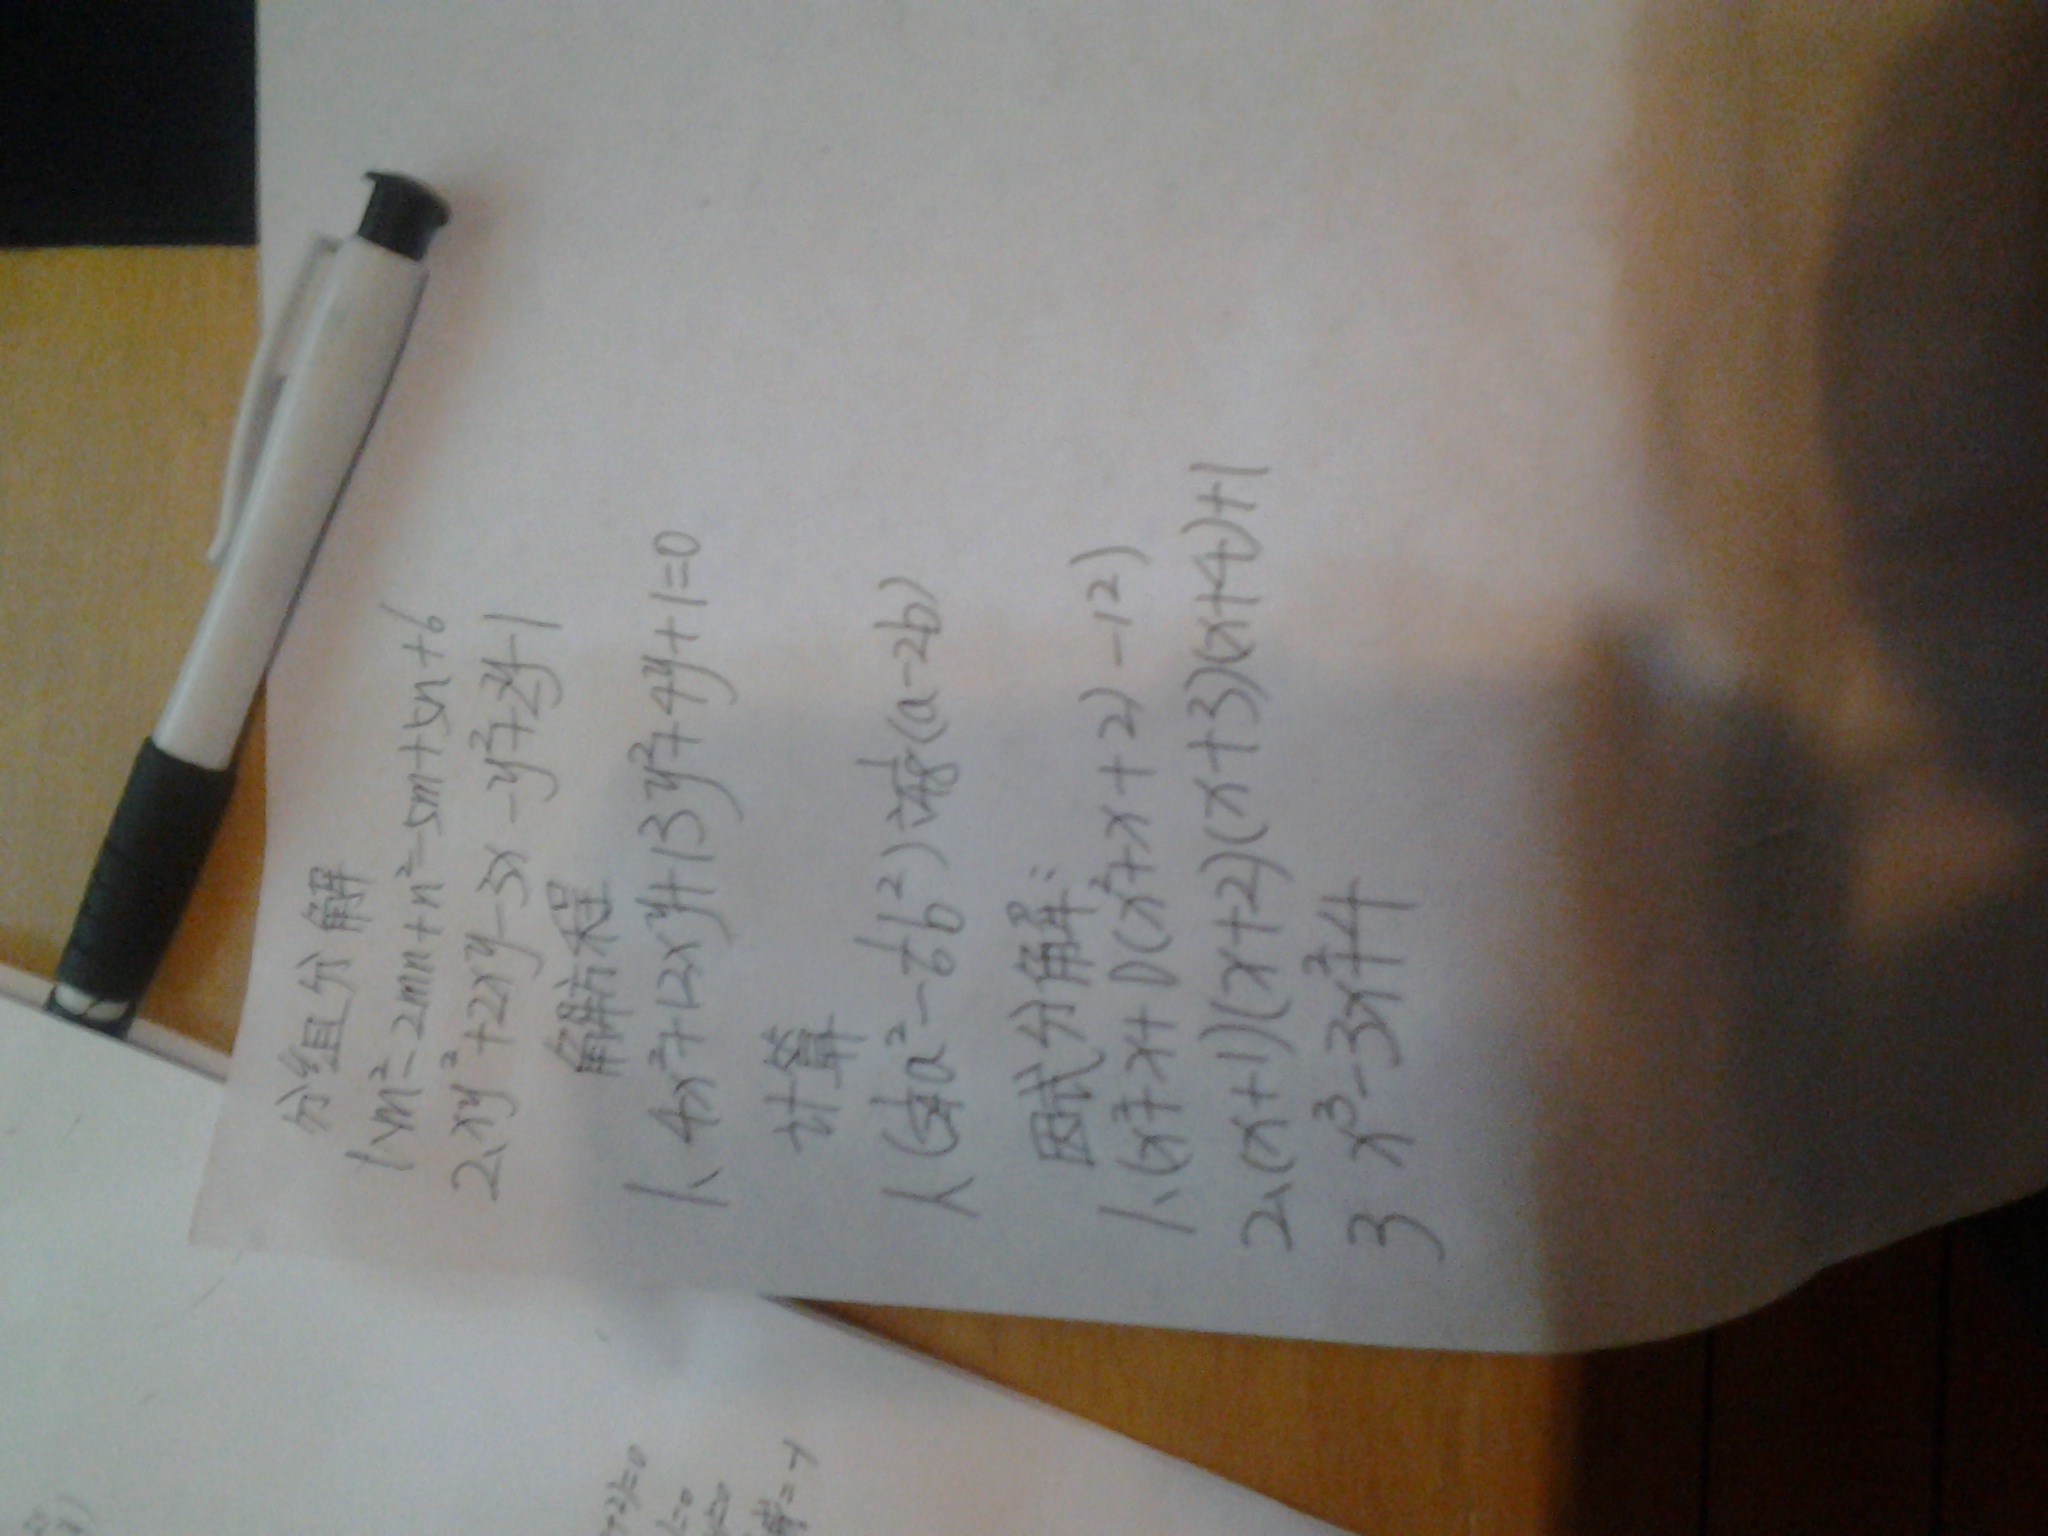 分组分解
1、m²-2mn+n²-5m+5n+6
2、xy²+2xy-3x-y²+2y-1
解方程
1、4x²+12xy+13y²+4y+1=0
计算
1、(a²-b²)(a-2b)
因式分解:
1、(x²+x+1)(x²+x+2)-12)
2、(x+1)(x+2)(x+3)(x+4)+1
3 x³-3x²+4
+2)=0
=0
=0